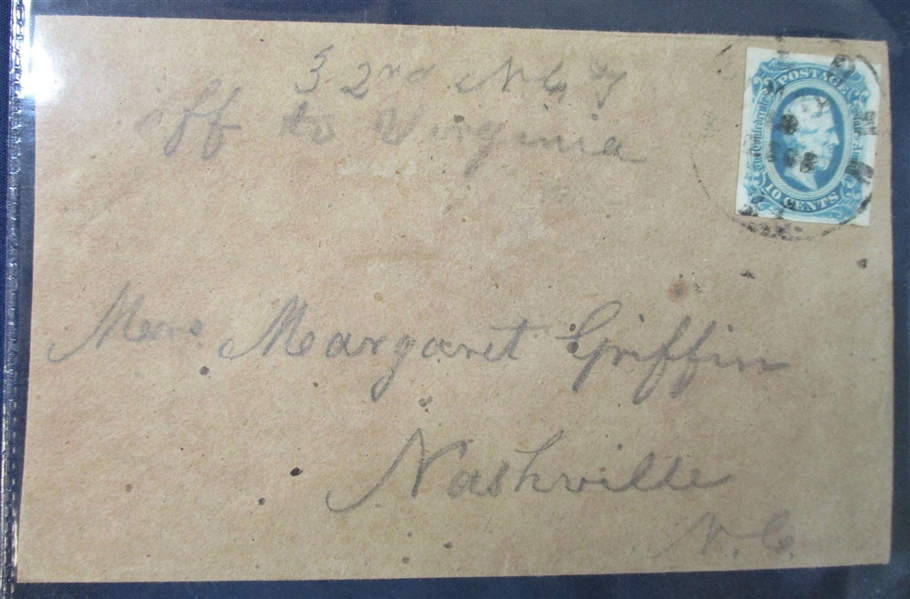 32nd N C T
off to Virginia
POSTAGE
The Confederate States of America
10 CENTS
Margaret Griffin
Nashville
N.C.